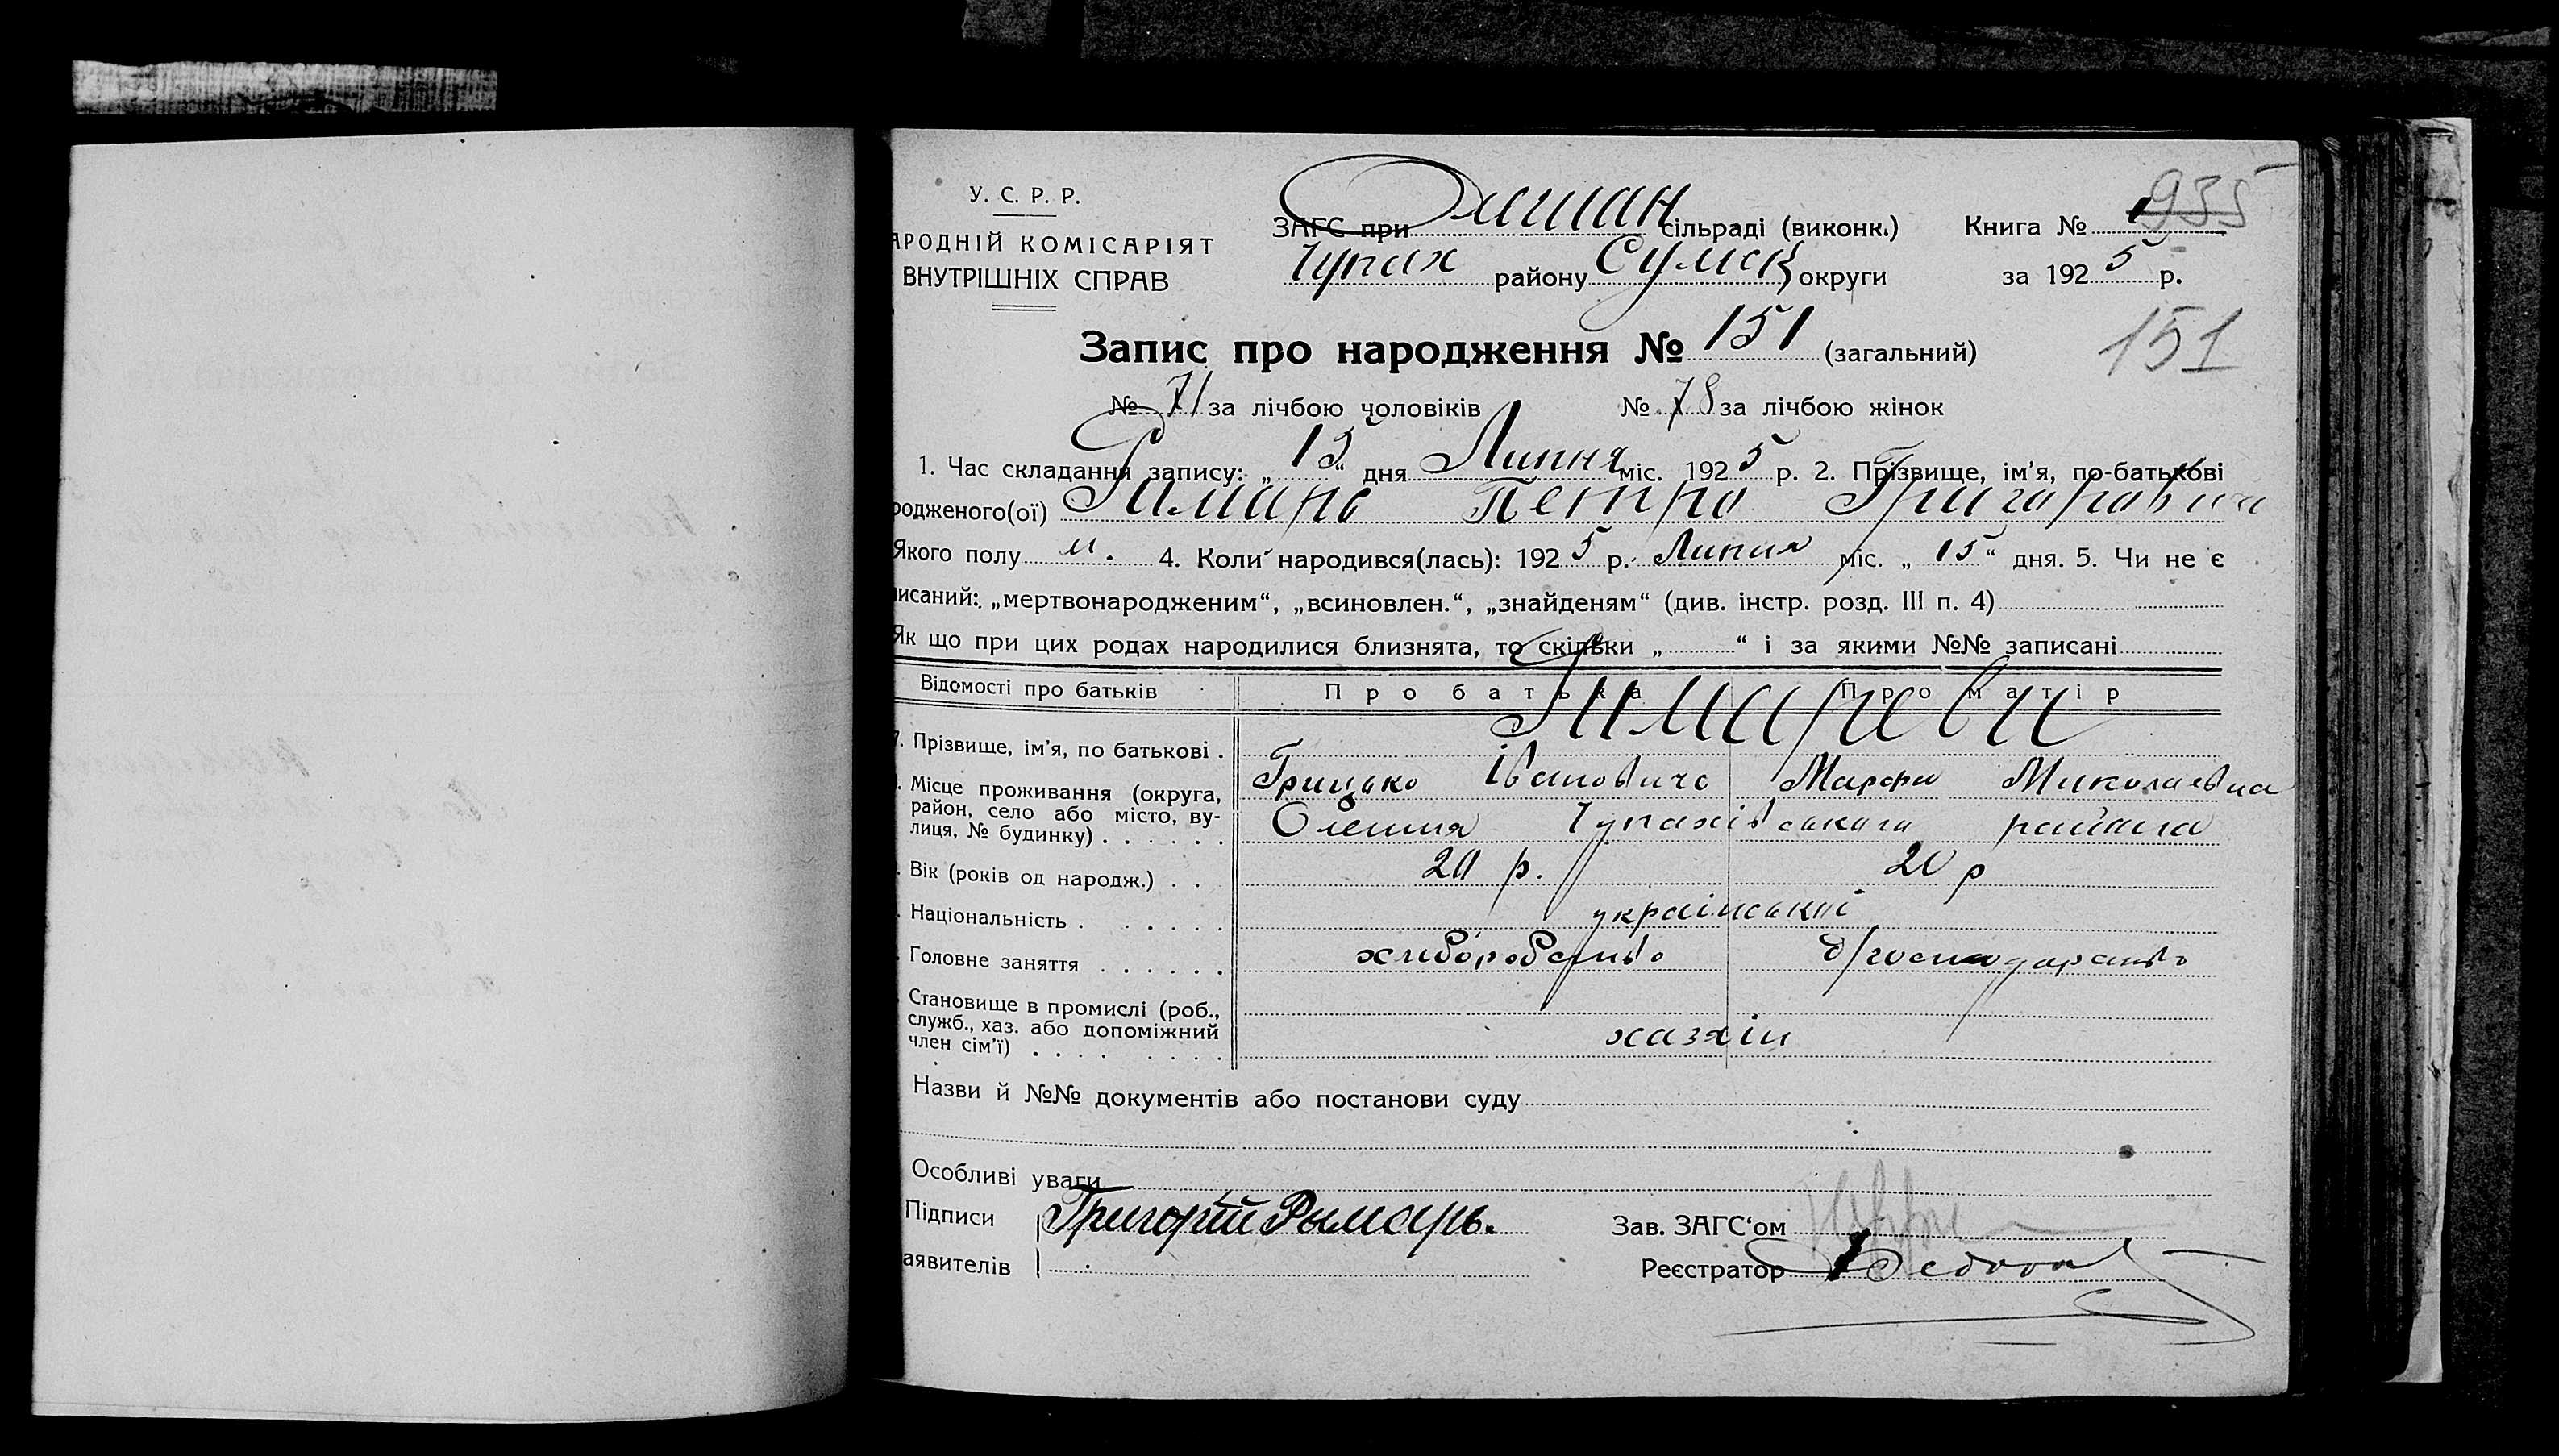 У. С. Р. Р.
АРОДНІЙ КОМІСАРІЯТ
ВНУТРІШНІХ СПРАВ
ЗАГС при Олешан сільраді (виконк.) Книга № 935
Чупах району Сумск округи за 1925 р.
Запис про народження № 151 (загальний) 151
№ 71 за лічбою чоловіків № 78 за лічбою жінок
1. Час складання запису: „15“ дня Липня міс. 1925 р. 2. Прізвище, ім'я, по-батькові
родженого(ої) Римарь Петро Григорович
Якого полу м. 4. Коли народився(лась): 1925 р. Липня міс. „15“ дня. 5. Чи не є
писаний: „мертвонародженим“, „всиновлен.“, „знайденям“ (див. інстр. розд. III п. 4)
Як що при цих родах народилися близнята, то скільки „ “ і за якими №№ записані
Відомості про батьків Про батька Про матір
7. Прізвище, ім'я, по батькові . Римареви
Грицько Івановичь Марфа Миколаевна
. Місце проживання (округа, район, село або місто, вулиця, № будинку) . . . . . . Олешня Чупахівського района
. Вік (років од народж.) . . 20 р. 20 р
. Національність . . . . . . український
. Головне заняття . . . . . . хліборобство д/господарство
. Становище в промислі (роб., служб., хаз. або допоміжний член сім'ї) . . . . . . . . хазяін
Назви й №№ документів або постанови суду
Особливі уваги
Підписи Григорій Рымарь. Зав. ЗАГС'ом
аявителів Реєстратор